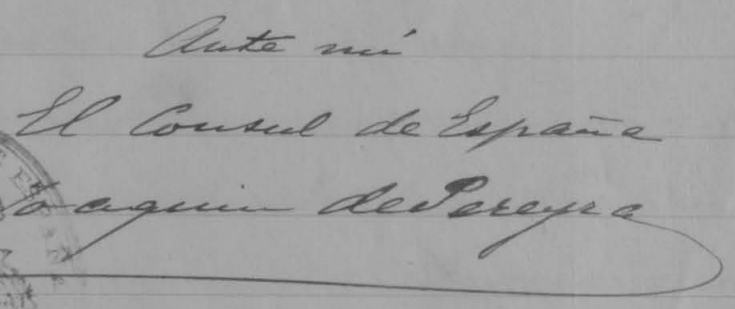 Ante mí
El Consul de España
Joaquin de Pereyra